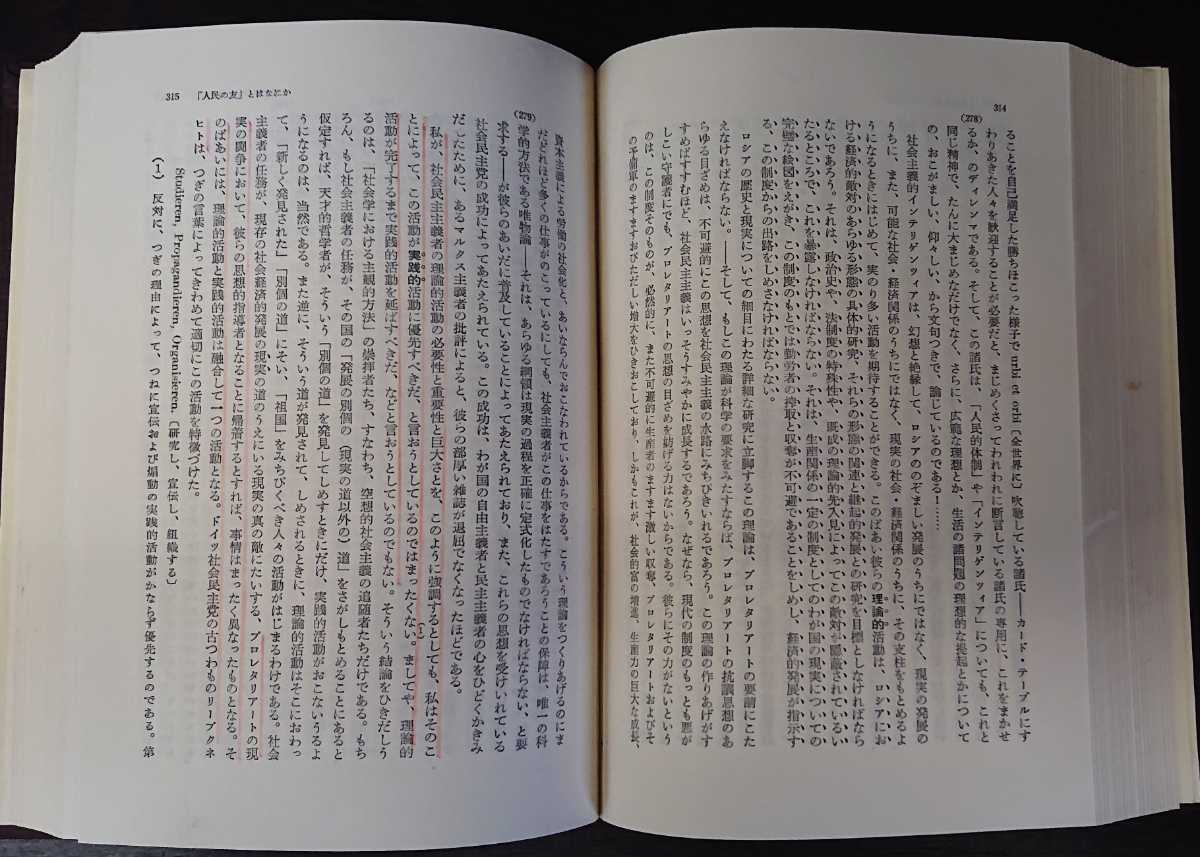 314
(278)
ることを自己満足した勝ちほこった様子で urbi et orbi〔全世界に〕吹聴している諸氏――カード・テーブルにす
わりあきた人々を歓迎することが必要だと、まじめくさってわれわれに断言している諸氏の専用に、これをまかせ
るか、のディレンマである。そして、この諸氏は、「人民的体制」や「インテリゲンツィア」についても、これと
同じ精神で、たんに大まじめなだけでなく、さらに、広範な理想とか、生活の諸問題の理想的な提起とかについて
の、おこがましい、仰々しい、から文句つきで、論じているのである!……
社会主義的インテリゲンツィアは、幻想と絶縁して、ロシアののぞましい発展のうちにではなく、現実の発展の
うちに、また、可能な社会・経済関係のうちにではなく、現実の社会・経済関係のうちに、その支柱をもとめるよ
うになるときにはじめて、実のり多い活動を期待することができる。このばあい彼らの理論的活動は、ロシアにお
ける経済的敵対のあらゆる形態の具体的研究、それらの形態の関連と継起的発展との研究を目標としなければなら
ないであろう。それは、政治史や、法制度の特殊性や、既成の理論的先入見によってこの敵対が隠蔽されているい
たるところで、これを暴露しなければならない。それは、生産関係の一定の制度としてのわが国の現実についての
完璧な絵図をえがき、この制度のもとでは勤労者の搾取と収奪が不可避であることをしめし、経済的発展が指示す
る、この制度からの出路をしめさなければならない。
ロシアの歴史と現実についての細目にわたる詳細な研究に立脚するこの理論は、プロレタリアートの要請にこた
えなければならない。――そして、もしこの理論が科学の要求をみたすならば、プロレタリアートの抗議思想のあ
らゆる目ざめは、不可避的にこの思想を社会民主主義の水路にみちびきいれるであろう。この理論の作りあげがす
すめばすすむほど、社会民主主義はいっそうすみやかに成長するであろう。なぜなら、現代の制度のもっとも悪が
しこい守護者にでも、プロレタリアートの思想の目ざめを妨げる力はないからである。彼らにその力がないという
のは、この制度そのものが、必然的に、また不可避的に生産者のますます激しい収奪、プロレタリアートおよびそ
の予備軍のますますおびただしい増大をひきおこしており、しかもこれが、社会的富の増進、生産力の巨大な成長、
315 『人民の友』とはなにか
(279)
資本主義による労働の社会化と、あいならんでおこなわれているからである。こういう理論をつくりあげるのにま
だどれほど多くの仕事がのこっているにしても、社会主義者がこの仕事をはたすであろうことの保障は、唯一の科
学的方法である唯物論――それは、あらゆる綱領は現実の過程を正確に定式化したものでなければならない、と要
求する――が彼らのあいだに普及していることによってあたえられており、また、これらの思想を受けいれている
社会民主党の成功によってあたえられている。この成功は、わが国の自由主義者と民主主義者の心をひどくかきみ
だしたために、あるマルクス主義者の批評によると、彼らの部厚い雑誌が退屈でなくなったほどである。
私が、社会民主主義者の理論的活動の必要性と重要性と巨大さとを、このように強調するとしても、私はそのこ
とによって、この活動が実践的活動に優先すべきだ、と言おうとしているのではまったくない。(1)ましてや、理論的
活動が完了するまで実践的活動を延ばすべきだ、などと言おうとしているのでもない。そういう結論をひきだしう
るのは、「社会学における主観的方法」の崇拝者たち、すなわち、空想的社会主義の追随者たちだけである。もち
ろん、もし社会主義者の任務が、その国の「発展の別個の(現実の道以外の)道」をさがしもとめることにあると
仮定すれば、天才的哲学者が、そういう「別個の道」を発見してしめすときにだけ、実践的活動がおこないうるよ
うになるのは、当然である。また逆に、そういう道が発見されて、しめされるときに、理論的活動はそこにおわっ
て、「新しく発見された」「別個の道」にそい、「祖国」をみちびくべき人々の活動がはじまるわけである。社会
主義者の任務が、現存の社会経済的発展の現実の道のうえにいる現実の真の敵にたいする、プロレタリアートの現
実の闘争において、彼らの思想的指導者となることに帰着するとすれば、事情はまったく異なったものとなる。そ
のばあいには、理論的活動と実践的活動は融合して一つの活動となる。ドイツ社会民主党の古つわものリープクネ
ヒトは、つぎの言葉によってきわめて適切にこの活動を特徴づけた。
Studieren, Propagandieren, Organisieren.〔研究し、宣伝し、組織する〕
(1) 反対に、つぎの理由によって、つねに宣伝および煽動の実践的活動がかならず優先するのである。第